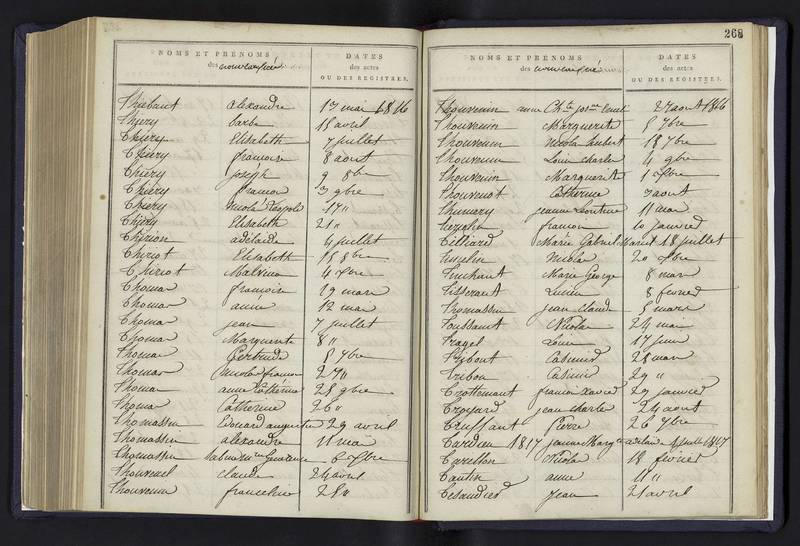 NOMS ET PRÉNOMS
des nouveaux-nés
DATES
des actes
OU DES REGISTRES.
Thiebaut alexandre 17 mai 1816
Thiery barbe 15 avril
Thiery Elisabeth 7 juillet
Thiery françoise 8 aout
Thiery joseph 9 8bre
Thiery françois 3 9bre
Thiery nicolas Léopold 17 "
Thiery Elisabeth 21 "
Thirion adelaide 4 juillet
Thiriot Elisabeth 15 8bre
Thiriot Malvina
Thomas françoise 19 mars
Thomas anne 12 mai
Thomas jean 7 juillet
Thomas Marguerite 8 "
Thomas Gertrude 5 7bre
Thomas nicolas françois 27 "
Thomas anne Catherine 28 9bre
Thomas Catherine 26 "
Thomassin Edouard augustin 29 avril
Thomassin alexandre 11 mai
Thomassin
Thouvenel claude 24 avril
Thouvenin franceline 28 "
268
NOMS ET PRÉNOMS
des nouveaux-nés
DATES
des actes
OU DES REGISTRES.
Thouvenin anne 27 aout 1816
Thouvenin Marguerite 5 7bre
Thouvenin Nicolas 18 7bre
Thouvenin Louis charles 4 9bre
Thouvenin Marguerite
Thouvenot Catherine 3 aout
Thumery jeanne Leontine 11 mai
françois 10 janvier
Tilliard Marie Gabriel 18 juillet
Nicolas
Marie George 8 mars
Tisserant Lucien 8 fevrier
Thomassin jean Claude 5 mars
Toussaint Nicolas 24 mai
Louis 17 juin
Casimir 28 mars
Tribou Casimir 29 "
Trottemant françois Xavier 29 janvier
Troyard jean charles 24 aout
Truffaut Pierre 26 7bre
Tardieu 1817 jeanne adelaide
Tarillon Nicolas 18 fevrier
Tautin anne 11 "
Tessandier Jean 21 avril